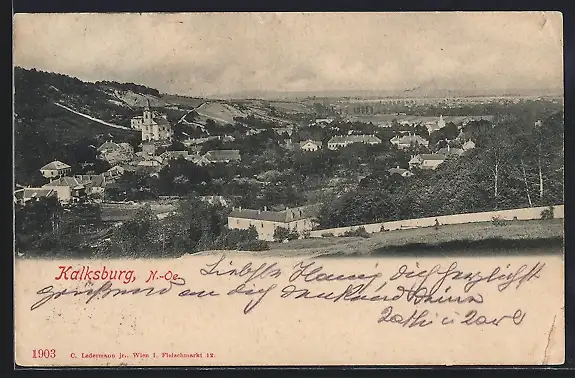 Kalksburg, N.-Oe.
Liebste Hansi, dich herzlichst
grüssend an dich denkend deine
1903 C. Ledermann jr., Wien I. Fleischmarkt 12.